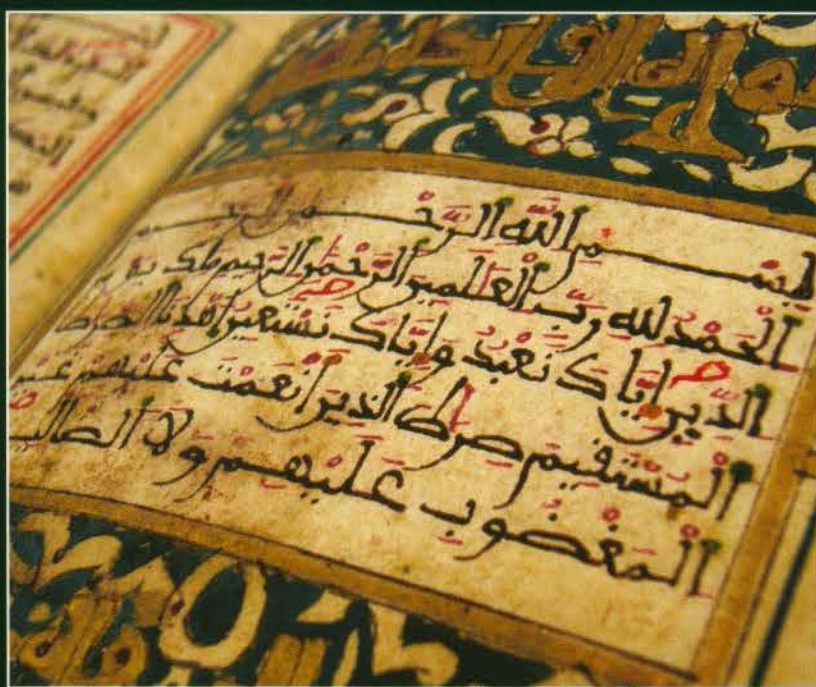 بِسْمِ اللَّهِ الرَّحْمَٰنِ الرَّحِيمِ
الْحَمْدُ لِلَّهِ رَبِّ الْعَٰلَمِينَ الرَّحْمَٰنِ الرَّحِيمِ مَلِكِ يَوْمِ
الدِّينِ إِيَّاكَ نَعْبُدُ وَإِيَّاكَ نَسْتَعِينُ اهْدِنَا الصِّرَٰطَ
الْمُسْتَقِيمَ صِرَٰطَ الَّذِينَ أَنْعَمْتَ عَلَيْهِمْ غَيْرِ
الْمَغْضُوبِ عَلَيْهِمْ وَلَا الضَّالِّينَ